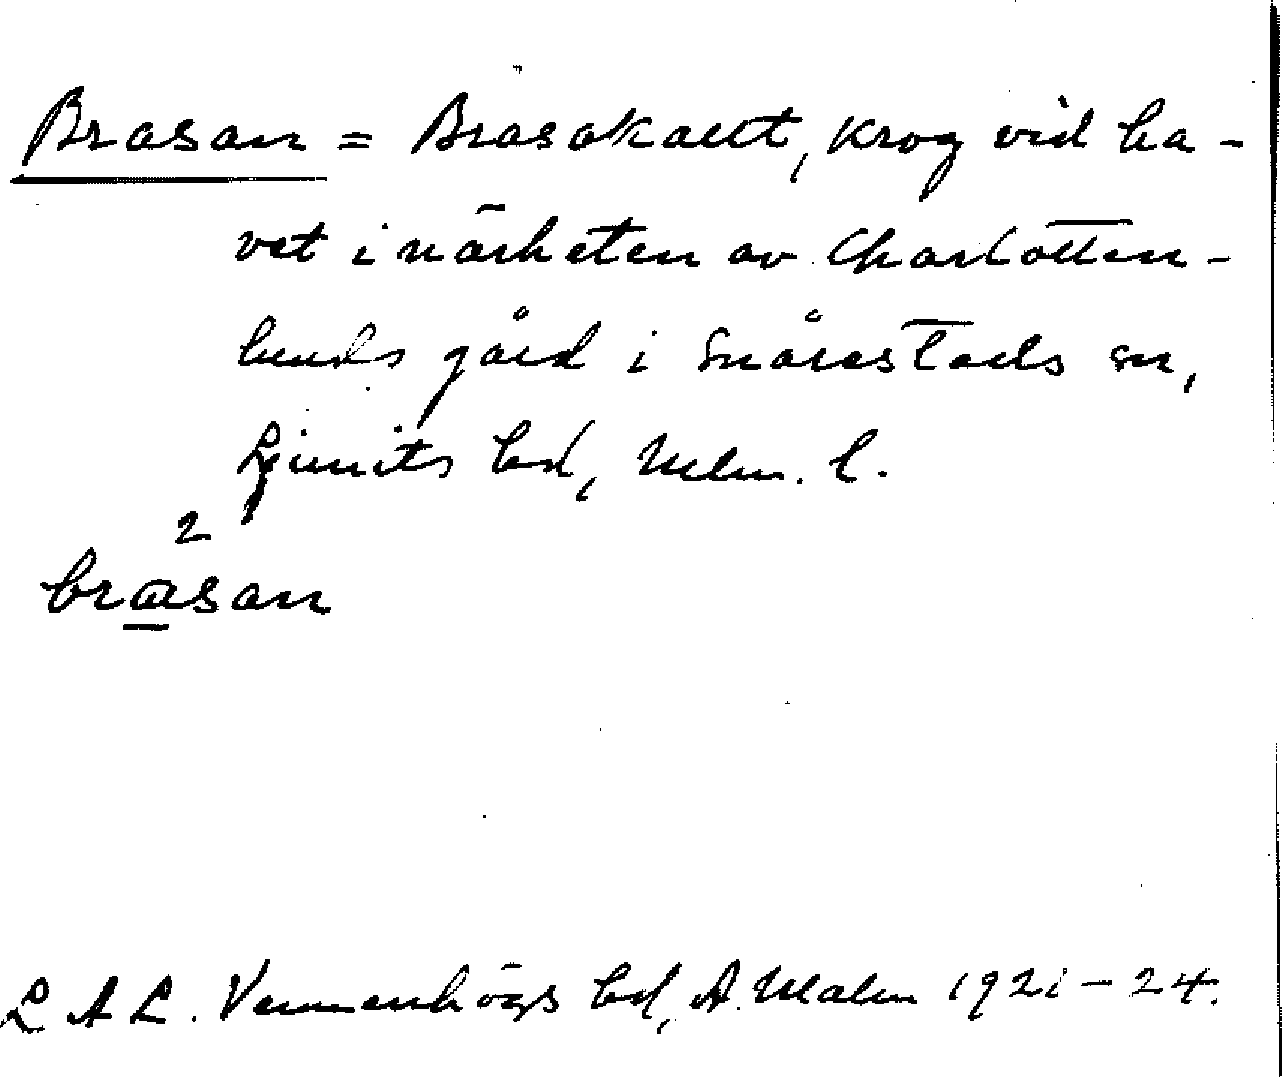 Brasan = Brasakallt, krog vid ha-
vet i närheten av Charlotten-
lunds gård i Snårestads sn,
Ljunits hd, Mlm. l.
2
brasan
L A L. Vemmenhögs hd, A. Malm 1921-24.